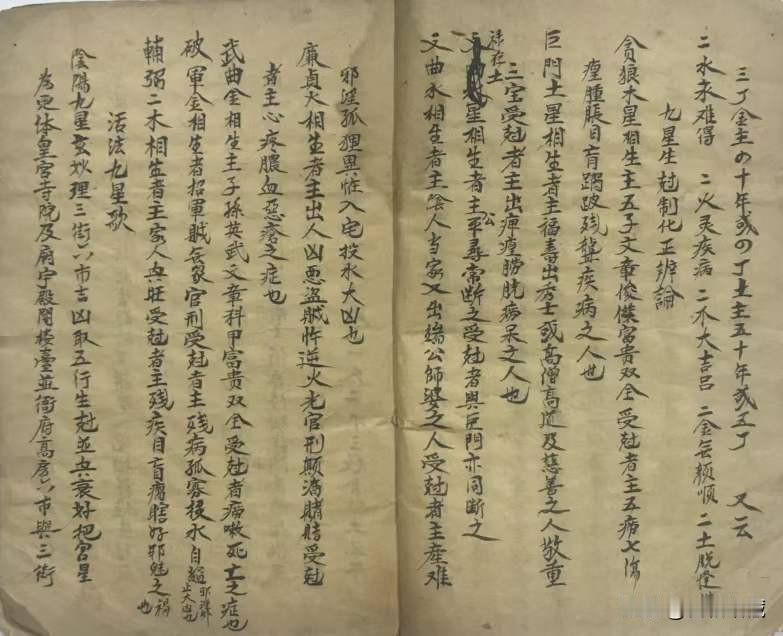 三丁金主四十年或四丁土主五十年或五丁　又云
二水求难得　二火灵疾病　二木大吉昌　二金会颓顺　二土脱
九星生尅制化正辨論
貪狼木星相生主五子文章俊傑富貴双全受尅者主五痨七傷
瘟腫脹目盲蹋跛残聾疾病之人也
巨門土星相生者主福壽出秀士或高僧高道及慈善之人敬重
三宝受尅者主出痺瘟膀胱痨呆之人也
禄存土
星相生者主平尋常断之受尅者與巨門亦同断之
文曲水相生者主陰人当家又出端公師婆之人受尅者主産难
邪淫孤狸異怪入宅投水大凶也
廉貞火相生者主出人凶恶盗賊忤逆火光官刑颠满賭賭受尅
者主心疼膿血惡瘡之症也
武曲金相生主子孫英武文章科甲富貴双全受尅者痨嗽死亡之症也
破軍金相生者招軍賊会象官刑受尅者主残病孤寡投水自縊
輔弼二木相生者主家人兴旺受尅者主残疾目盲瘸瞎好邪魅之禍也
活法九星歌
陰陽九星最妙理三街六市吉凶取五行生尅並兴衰好把宫星
為无体皇宫寺院及府宇殿閣楼臺並衙府高房六市與三街